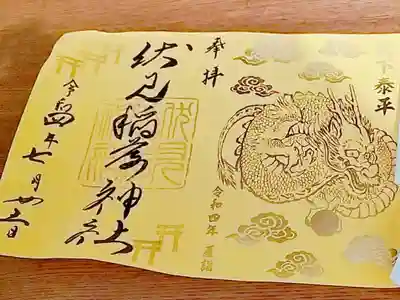 下泰平
奉拝
令和四年 夏詣
伏見稲荷神社
令和四年七月